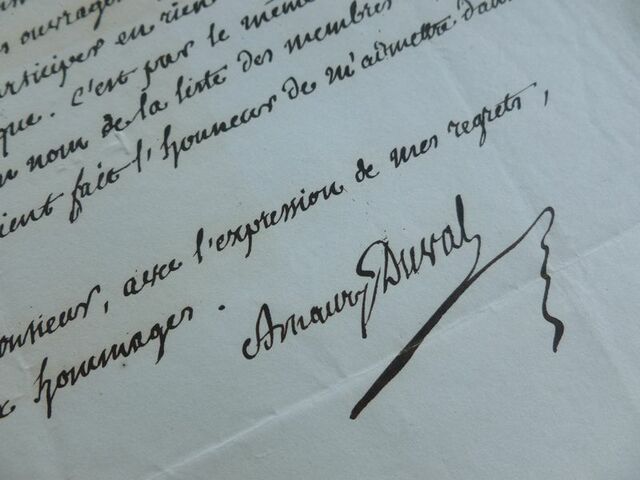 ouvrages
participer en rien
que. C'est par le même
nom de la liste des membres
ient fait l'honneur de m'admettre dans
onsieur, avec l'expression de mes regrets,
hommages.
Amaury Duval